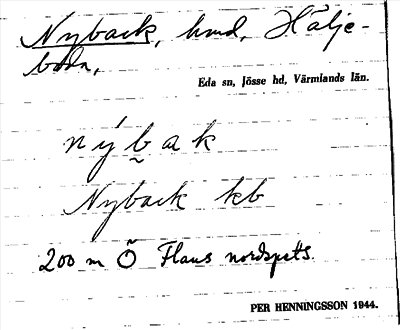 Nyback, hmd, Hälje-
boda,
Eda sn, Jösse hd, Värmlands län.
nýb̰ak
Nyback kb
200 m Ö Flans nordspets.
PER HENNINGSSON 1944.